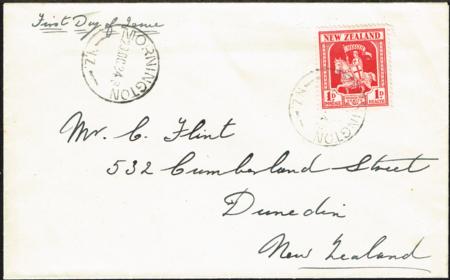 First Day of Issue
MORNINGTON
N.Z.
NEW ZEALAND
1D
1D
Mr. C. Flint
532 Cumberland Street
Dunedin
New Zealand